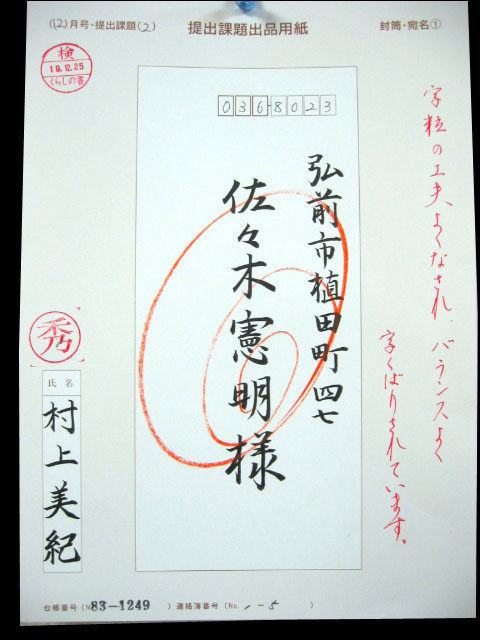 (12)月号・提出課題(2)
提出課題出品用紙
封筒・宛名①
検
18.12.25
くらしの書
036-8023
弘前市植田町四七
佐々木憲明様
字粒の工夫よくなされ、バランスよく
字くばりされています。
秀
氏名
村上美紀
台帳番号(N83-1249 ) 連絡簿番号(No. 1-5 )